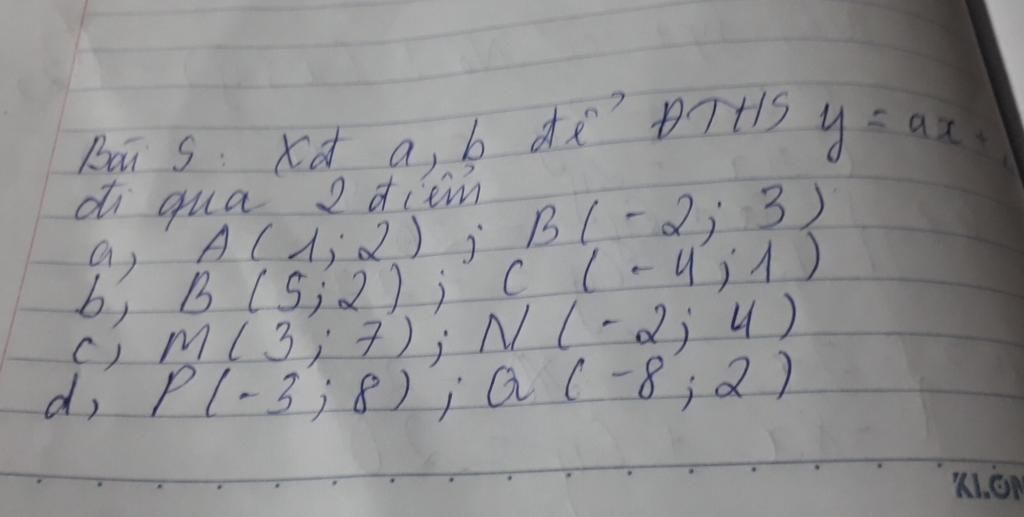 Bài 5: Xđ a, b để ĐTHS y = ax +
đi qua 2 điểm
a, A(1; 2) ; B(-2; 3)
b, B(5; 2) ; C (-4; 1)
c, M(3; 7) ; N(-2; 4)
d, P(-3; 8) ; Q(-8; 2)